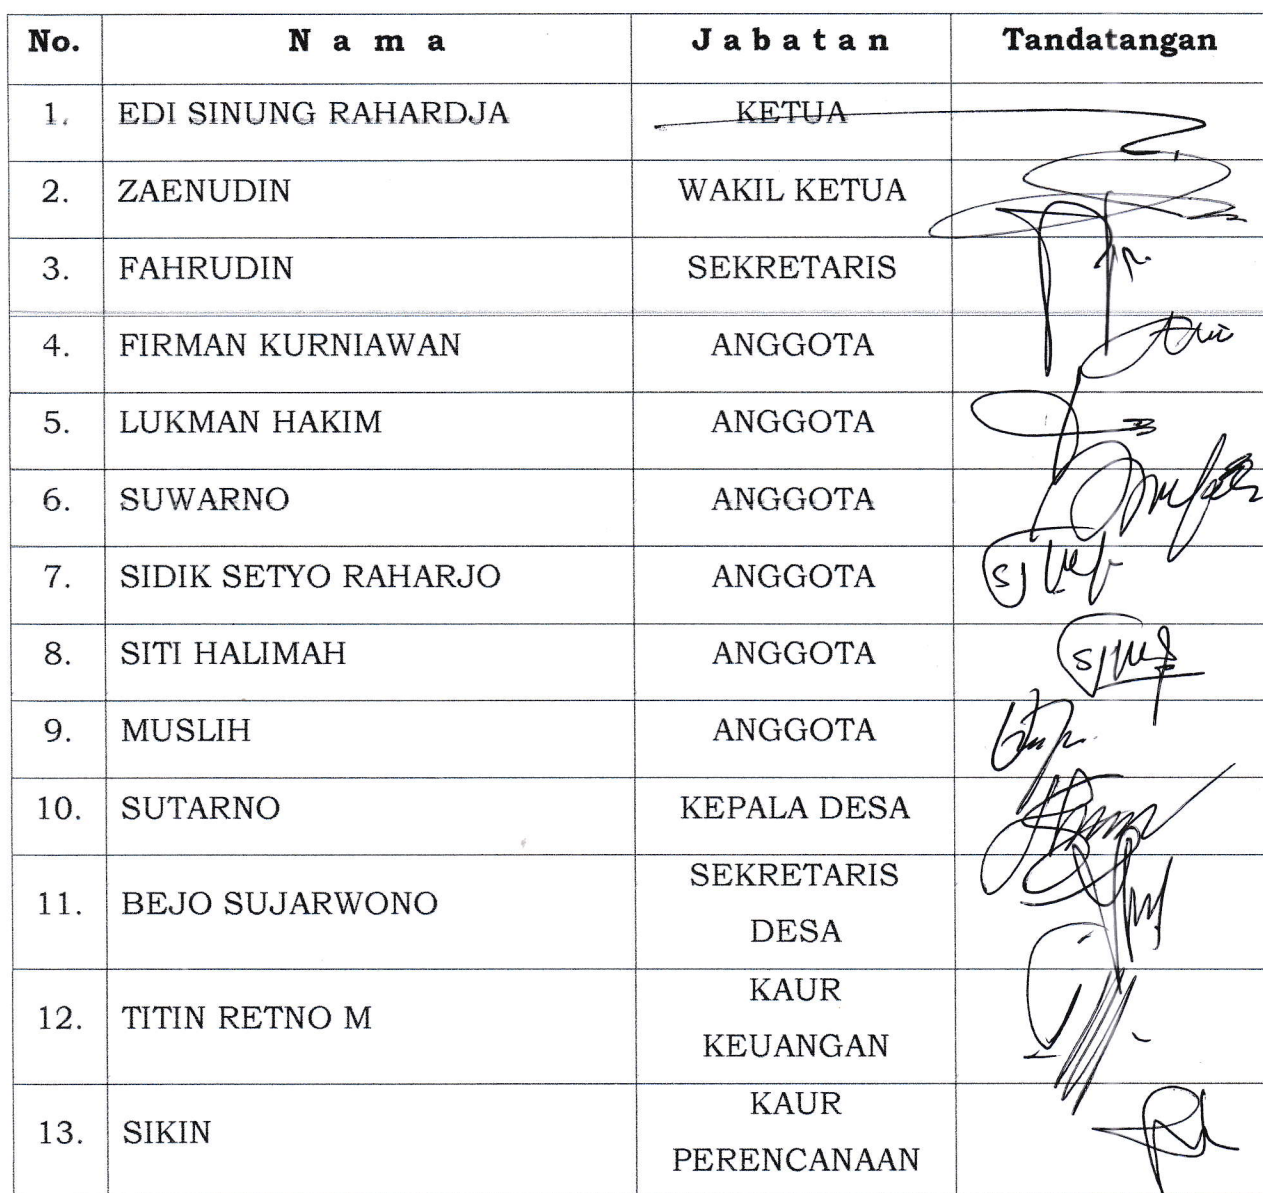 No. N a m a J a b a t a n Tandatangan
1. EDI SINUNG RAHARDJA KETUA
2. ZAENUDIN WAKIL KETUA
3. FAHRUDIN SEKRETARIS
4. FIRMAN KURNIAWAN ANGGOTA
5. LUKMAN HAKIM ANGGOTA
6. SUWARNO ANGGOTA
7. SIDIK SETYO RAHARJO ANGGOTA
8. SITI HALIMAH ANGGOTA
9. MUSLIH ANGGOTA
10. SUTARNO KEPALA DESA
11. BEJO SUJARWONO SEKRETARIS
DESA
12. TITIN RETNO M KAUR
KEUANGAN
13. SIKIN KAUR
PERENCANAAN